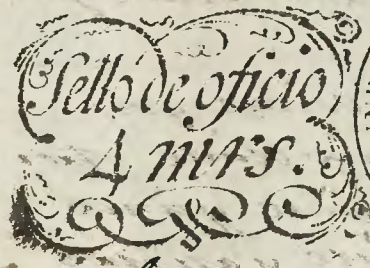 Sello de oficio
4 mrs.